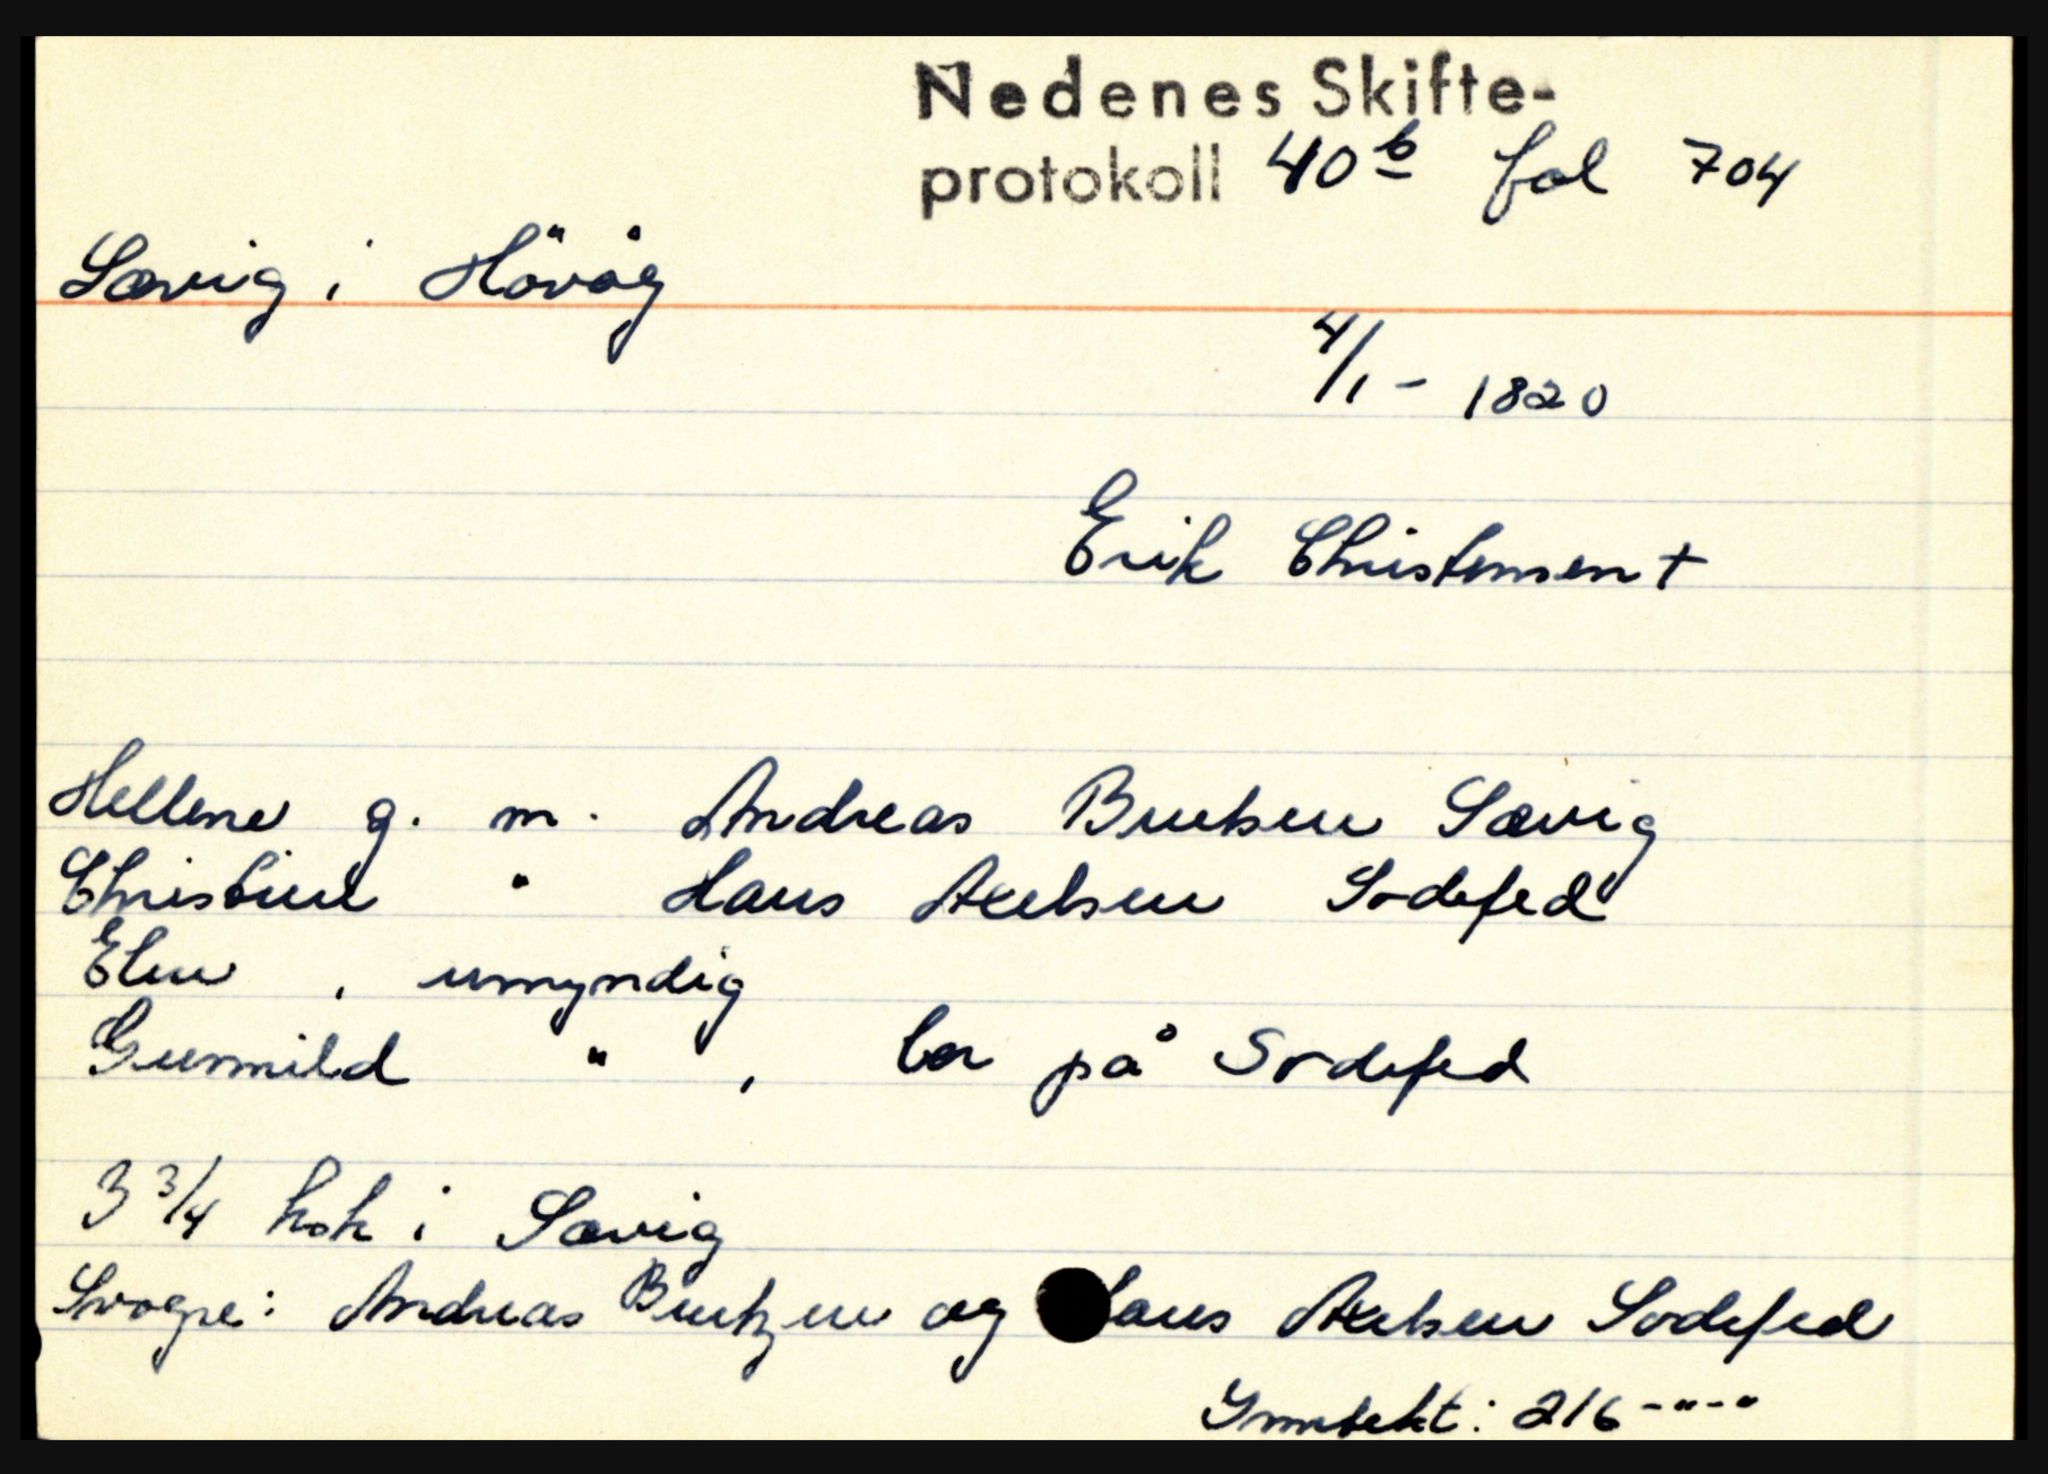 Nedenes Skifte-
protokoll 40b fol 704
Sævig i Hövåg
4/1 - 1820
Erik Christensen †
Hellene g. m. Andreas Bentsen Sævig
Christine " Hans Axelsen Sodefed
Elen , umyndig
Gunnild " , bor på Sodefed
3 3/4 kok i Sævig
Svogre: Andreas Bentzen og Hans Axelsen Sodefed
Inntekt: 216 -"-"